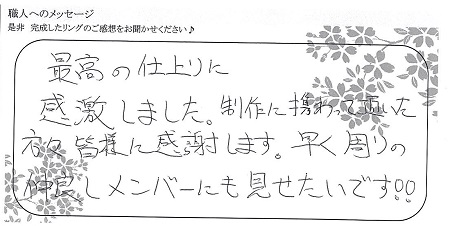 職人へのメッセージ
是非 完成したリングのご感想をお聞かせください♪
最高の仕上りに
感激しました。制作に携わって頂いた
方々皆様に感謝します。早く周りの
仲良しメンバーにも見せたいです!!